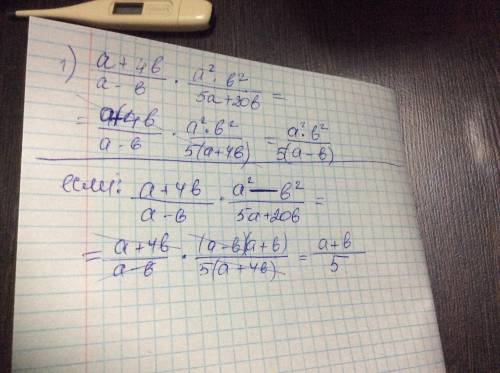 1) (a + 4b)/(a - b) · (a² · b²)/(5a + 20b) =
= (a + 4b)/(a - b) · (a² · b²)/(5(a + 4b)) = (a² · b²)/(5(a - b))
если: (a + 4b)/(a - b) · (a² - b²)/(5a + 20b) =
= (a + 4b)/(a - b) · ((a - b)(a + b))/(5(a + 4b)) = (a + b)/5